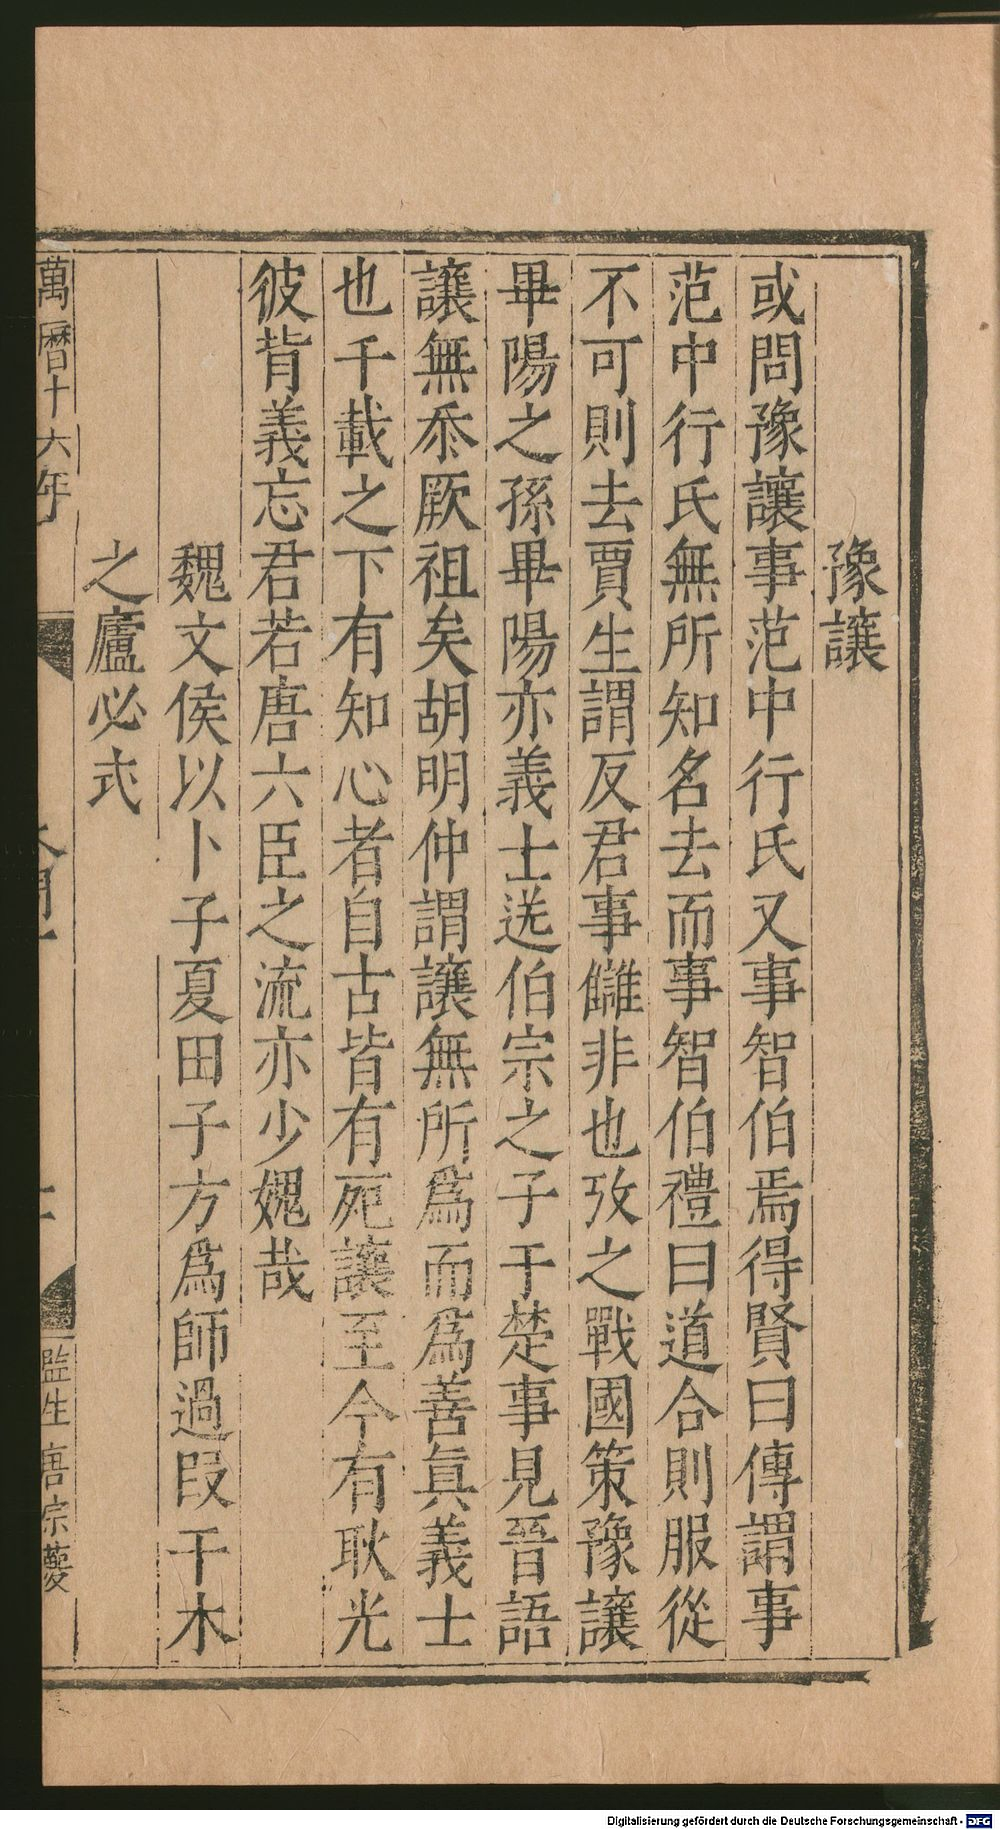 豫讓
或問豫讓事范中行氏又事智伯焉得賢曰傳謂事
范中行氏無所知名去而事智伯禮曰道合則服從
不可則去賈生謂反君事讎非也攷之戰國策豫讓
畢陽之孫畢陽亦義士送伯宗之子于楚事見晉語
讓無忝厥祖矣胡明仲謂讓無所爲而爲善眞義士
也千載之下有知心者自古皆有死讓至今有耿光
彼背義忘君若唐六臣之流亦少媿哉
魏文侯以卜子夏田子方爲師過段干木
之廬必式
萬曆十六年
監生唐宗夔
Digitalisierung gefördert durch die Deutsche Forschungsgemeinschaft - DFG